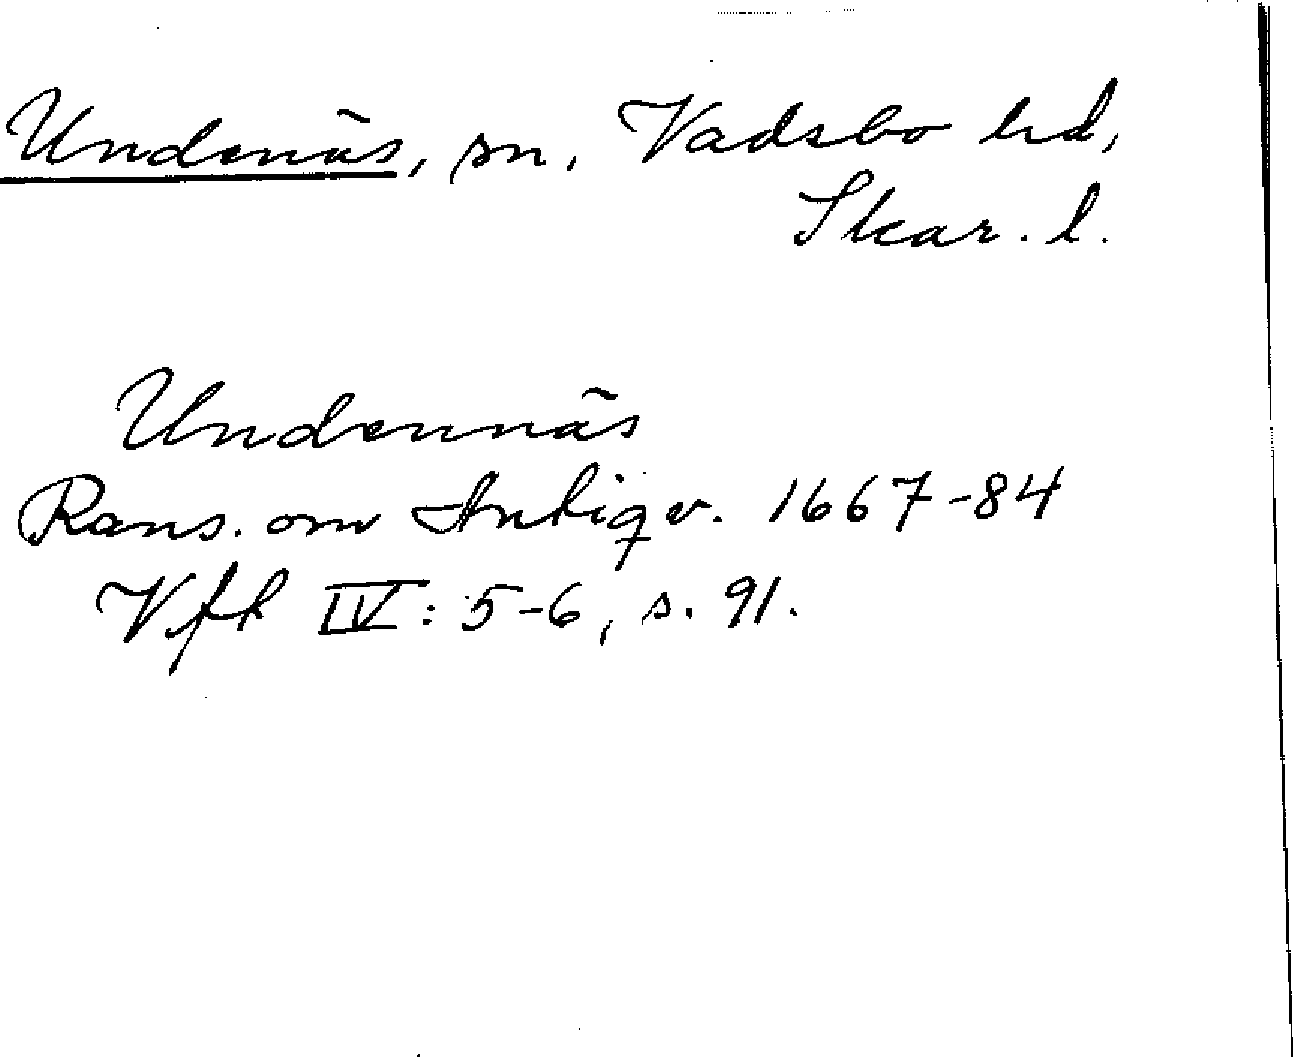 Undenäs, sn, Vadsbo hd,
Skar. l.
Undennäs
Rans. om Antiqv. 1667-84
Vfh IV: 5-6, s. 91.